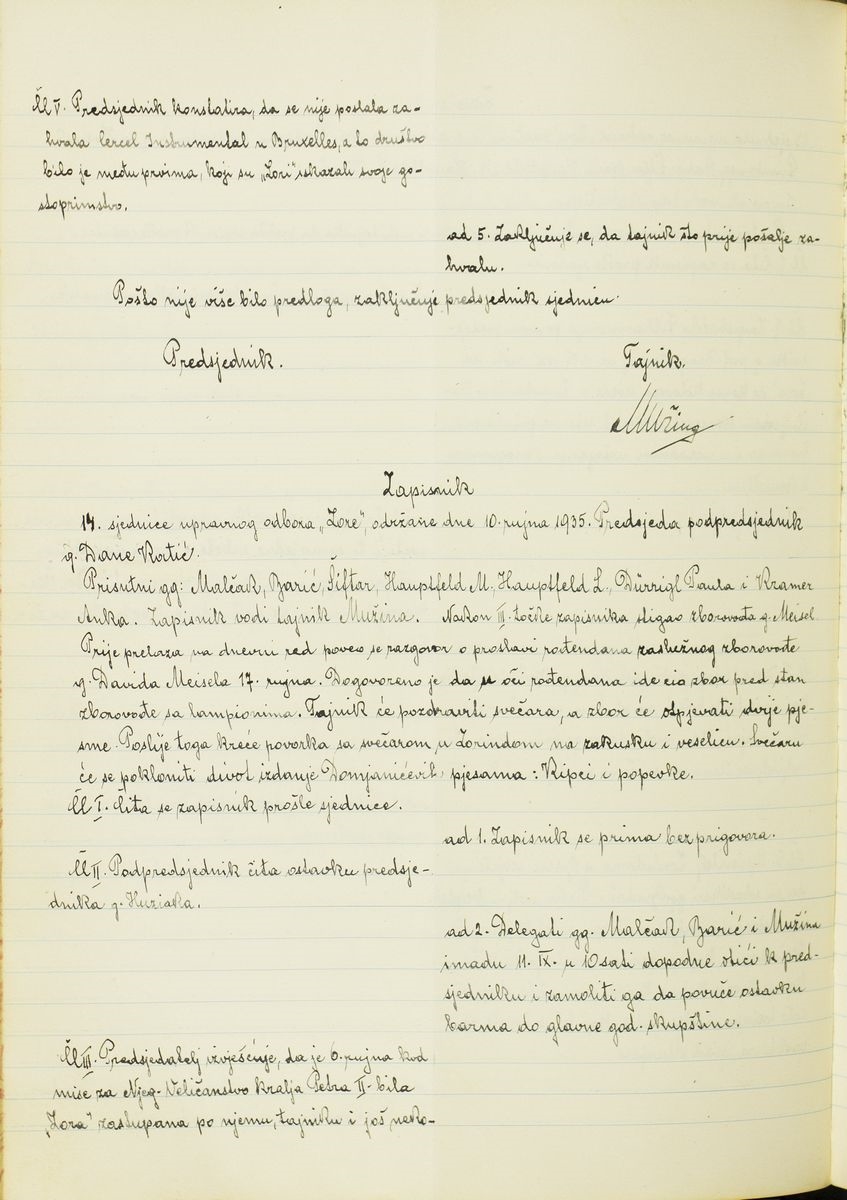 Čl V. Predsjednik konstatira, da se nije poslala za-
hvala Cercel Instrumental u Bruxelles, a to društvo
bilo je među prvima, koji su „Zori" iskazali svoje go-
stoprimstvo.
ad 5. Zaključuje se, da tajnik što prije pošalje za-
hvalu.
Pošto nije više bilo predloga, zaključuje predsjednik sjednicu.
Predsjednik. Tajnik.
Mužina
Zapisnik
14. sjednice upravnog odbora „Zore", održane dne 10. rujna 1935. Predsjeda podpredsjednik
g. Dane Katić.
Prisutni gg: Malčak, Barić, Šiftar, Hauptfeld M., Hauptfeld L., Dürrigl Paula i Kramer
Anka. Zapisnik vodi tajnik Mužina. Nakon III. točke zapisnika stigao zborovođa g. Meisel.
Prije prelaza na dnevni red poveo se razgovor o proslavi rođendana zaslužnog zborovođe
g. Davida Meisela 17. rujna. Dogovoreno je da u oči rođendana ide cio zbor pred stan
zborovođe sa lampionima. Tajnik će pozdraviti svečara, a zbor će otpjevati dvije pje-
sme. Poslije toga kreće povorka sa svečarom u Zorindom na zakusku i veselicu. Svečaru
će se pokloniti divot izdanje Domjanićevih pjesama: Kipci i popevke.
Čl I. Čita se zapisnik prošle sjednice.
ad 1. Zapisnik se prima bez prigovora.
Čl II. Podpredsjednik čita ostavku predsje-
dnika g. Huziaka.
ad 2. Delegati gg. Malčak, Barić i Mužina
imadu 11. IX. u 10 sati dopodne otići k pred-
sjedniku i zamoliti ga da povuče ostavku
barma do glavne god. skupštine.
Čl III. Predsjedatelj izvješćuje, da je 6. rujna kod
mise za Njeg. Veličanstvo kralja Petra II. bila
„Zora" zastupana po njemu, tajniku i još neko-